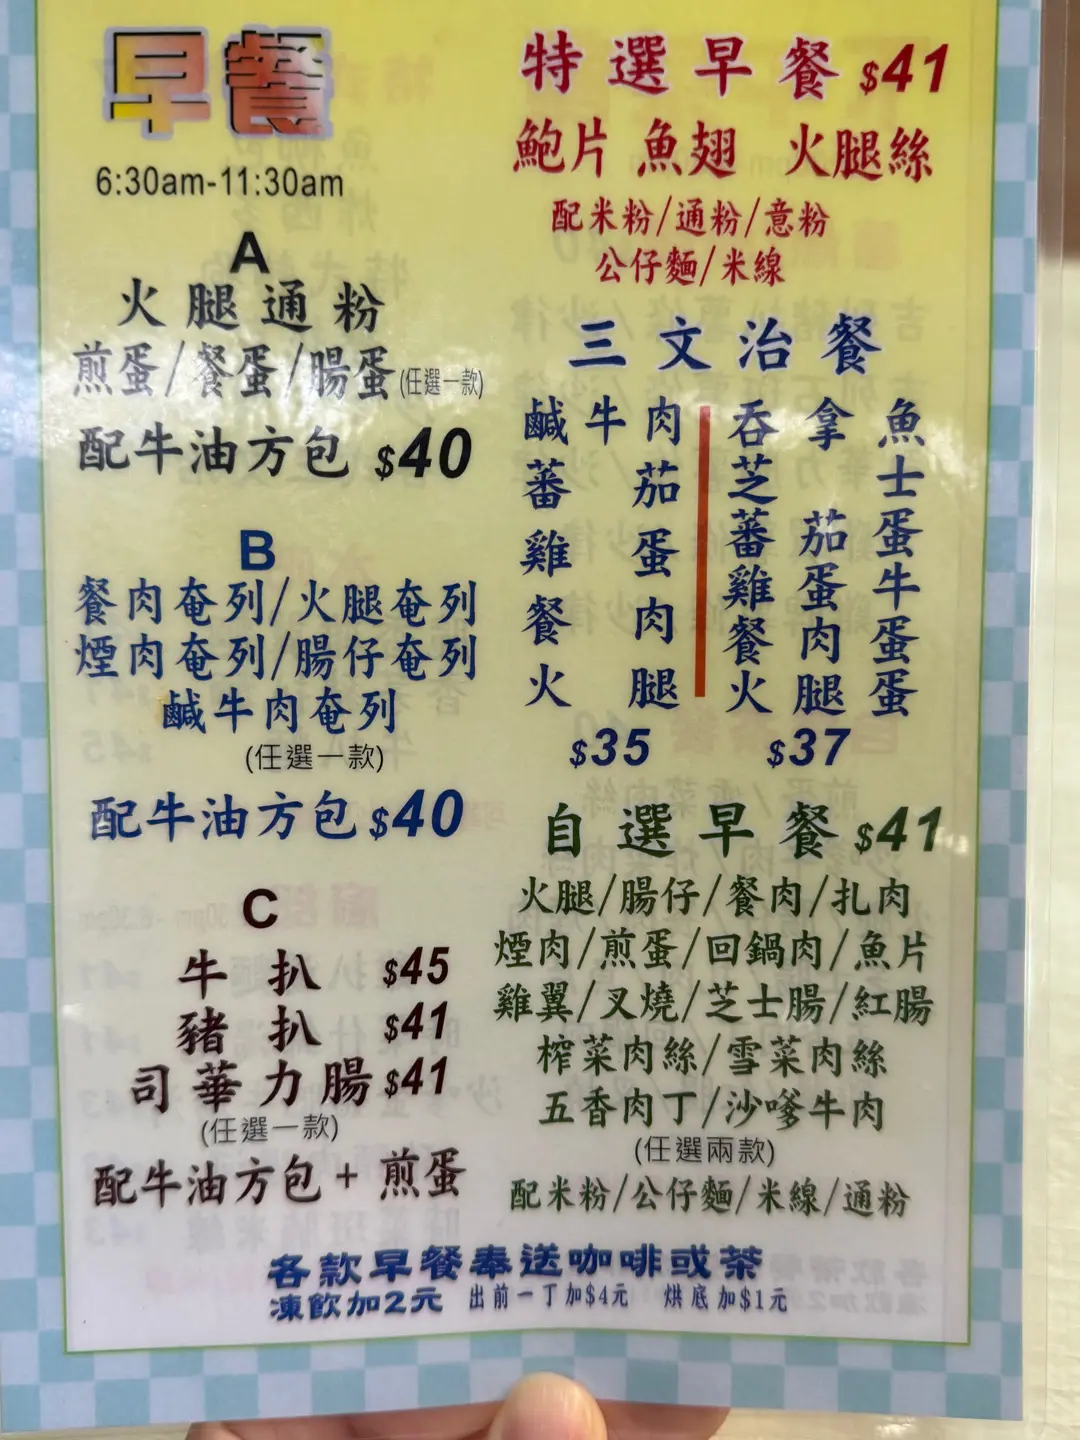 早餐
6:30am-11:30am
A
火腿通粉
煎蛋/餐蛋/腸蛋(任選一款)
配牛油方包 $40
B
餐肉奄列/火腿奄列
煙肉奄列/腸仔奄列
鹹牛肉奄列
(任選一款)
配牛油方包 $40
C
牛扒 $45
豬扒 $41
司華力腸 $41
(任選一款)
配牛油方包 + 煎蛋
特選早餐 $41
鮑片 魚翅 火腿絲
配米粉/通粉/意粉
公仔麵/米線
三文治餐
鹹牛肉
蕃茄
雞蛋
餐肉
火腿
$35
吞拿魚
芝士
蕃茄蛋
雞蛋牛
餐肉蛋
火腿蛋
$37
自選早餐 $41
火腿/腸仔/餐肉/扎肉
煙肉/煎蛋/回鍋肉/魚片
雞翼/叉燒/芝士腸/紅腸
榨菜肉絲/雪菜肉絲
五香肉丁/沙嗲牛肉
(任選兩款)
配米粉/公仔麵/米線/通粉
各款早餐奉送咖啡或茶
凍飲加2元 出前一丁加$4元 烘底加$1元